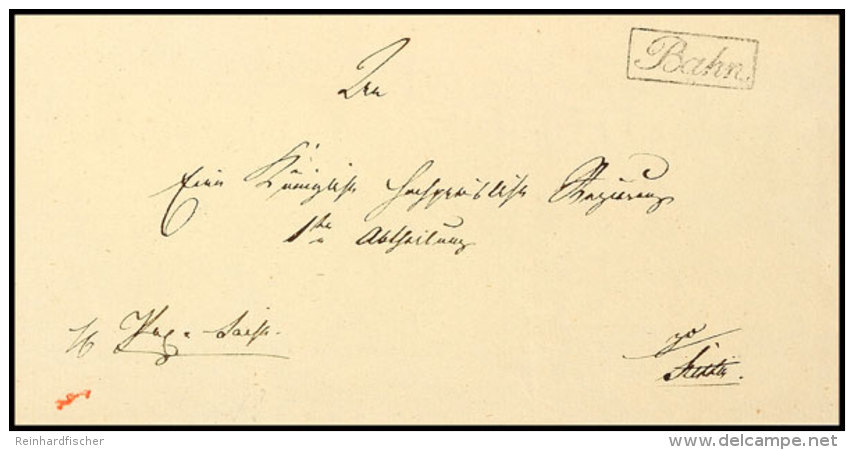 Bahn.
An
Eine Königlich Hochpreisliche Regierung
1te Abtheilung
zu
Stettin.
Reinhardfischer
www.delcampe.net